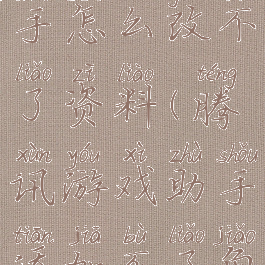 手怎么改不
liǎo zī liào téng
了资料(腾
xùn yóu xì zhù shǒu
讯游戏助手
tiān jiā bù liǎo jiǎo
添加不了角